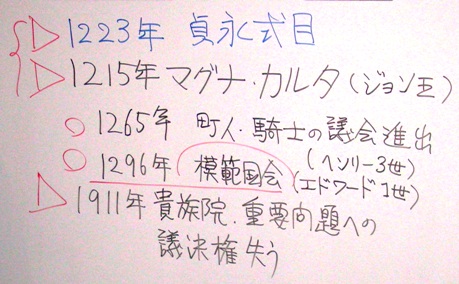 1223年 貞永式目
1215年マグナ・カルタ(ジョン王)
1265年 町人・騎士の議会進出
(ヘンリー3世)
1296年 模範国会(エドワード1世)
1911年貴族院、重要問題への
議決権失う